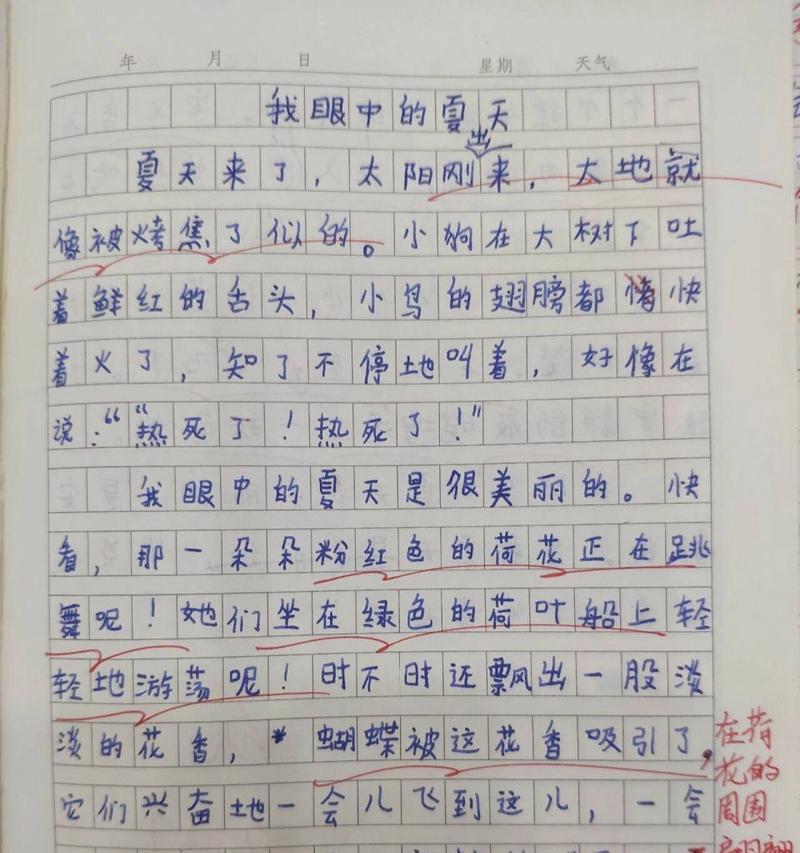 年 月 日 星期 天气
我眼中的夏天
夏天来了，太阳刚出来，大地就
像被烤焦了似的。小狗在大树下吐
着鲜红的舌头，小鸟的翅膀都快
着火了，知了不停地叫着，好像在
说：“热死了！热死了！”
我眼中的夏天是很美丽的。快
看，那一朵朵粉红色的荷花正在跳
舞呢！她们坐在绿色的荷叶船上轻
轻地游荡呢！时不时还飘出一股淡
淡的花香，蝴蝶被这花香吸引了，
它们兴奋地一会儿飞到这儿，一会
在荷
花的
周围